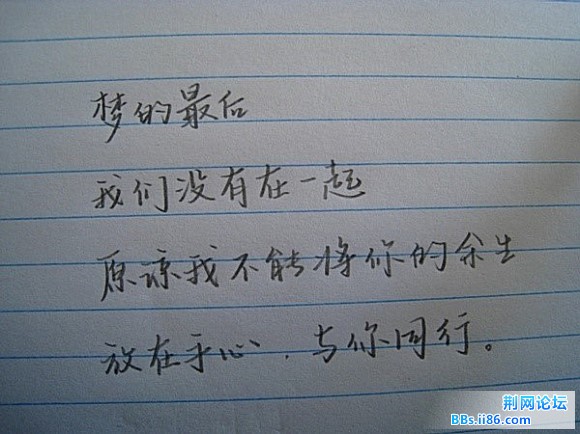 梦的最后
我们没有在一起
原谅我不能将你的余生
放在手心、与你同行。
荆网论坛
BBs.ii86.com